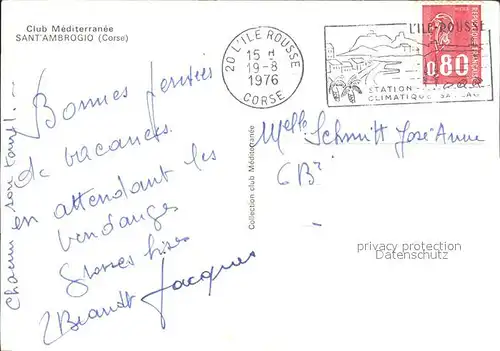 Club Méditerranée
SANT'AMBROGIO (Corse)
Bonnes pensées
de vacances
en attendant les
vendanges
Grosses bises
Brandt Jacques
Chacun son tour! ...
20 L'ILE ROUSSE
15 H
19-8
1976
CORSE
L'ILE-ROUSSE
STATION
CLIMATIQUE
REPUBLIQUE FRANÇAISE
0,80
Collection club Méditerranée
Melle Schmitt José Anne
6 Br
privacy protection
Datenschutz